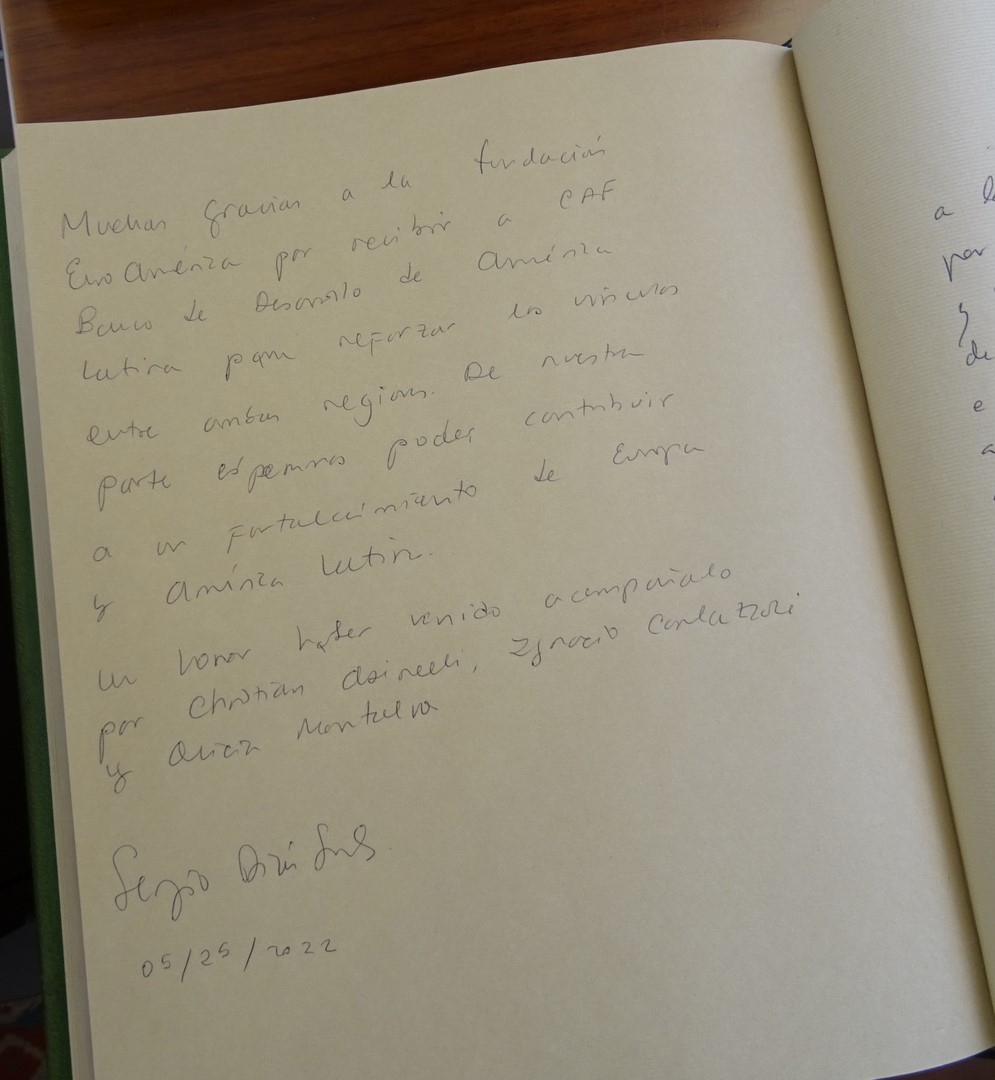 Muchas gracias a la fundación
EuroAmérica por recibir a CAF
Banco de Desarrollo de América
Latina para reforzar los vínculos
entre ambas regiones. De nuestra
parte esperamos poder contribuir
a un fortalecimiento de Europa
y América Latina.
Un honor haber venido acompañado
por Christian Asinelli, Ignacio Corlazzoli
y Alicia Montalvo
Sergio Díaz
05/25/2022
a
por
y
de
e
a